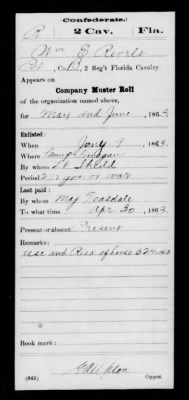 Confederate.
R 2 Cav. Fla.
Wm E Revels
Pvt, Co. B, 2 Reg't Florida Cavalry
Appears on
Company Muster Roll
of the organization named above,
for May and June, 186
Enlisted:
When Jany 1, 186
Where Camp Finegan
By whom Lt
Period 3 yrs or war
Last paid:
By whom Maj Teasdale
To what time Apr 30, 186
Present or absent Present
Remarks:
Use and Risk of horse $24.40
Book mark:
(642) Copyist.